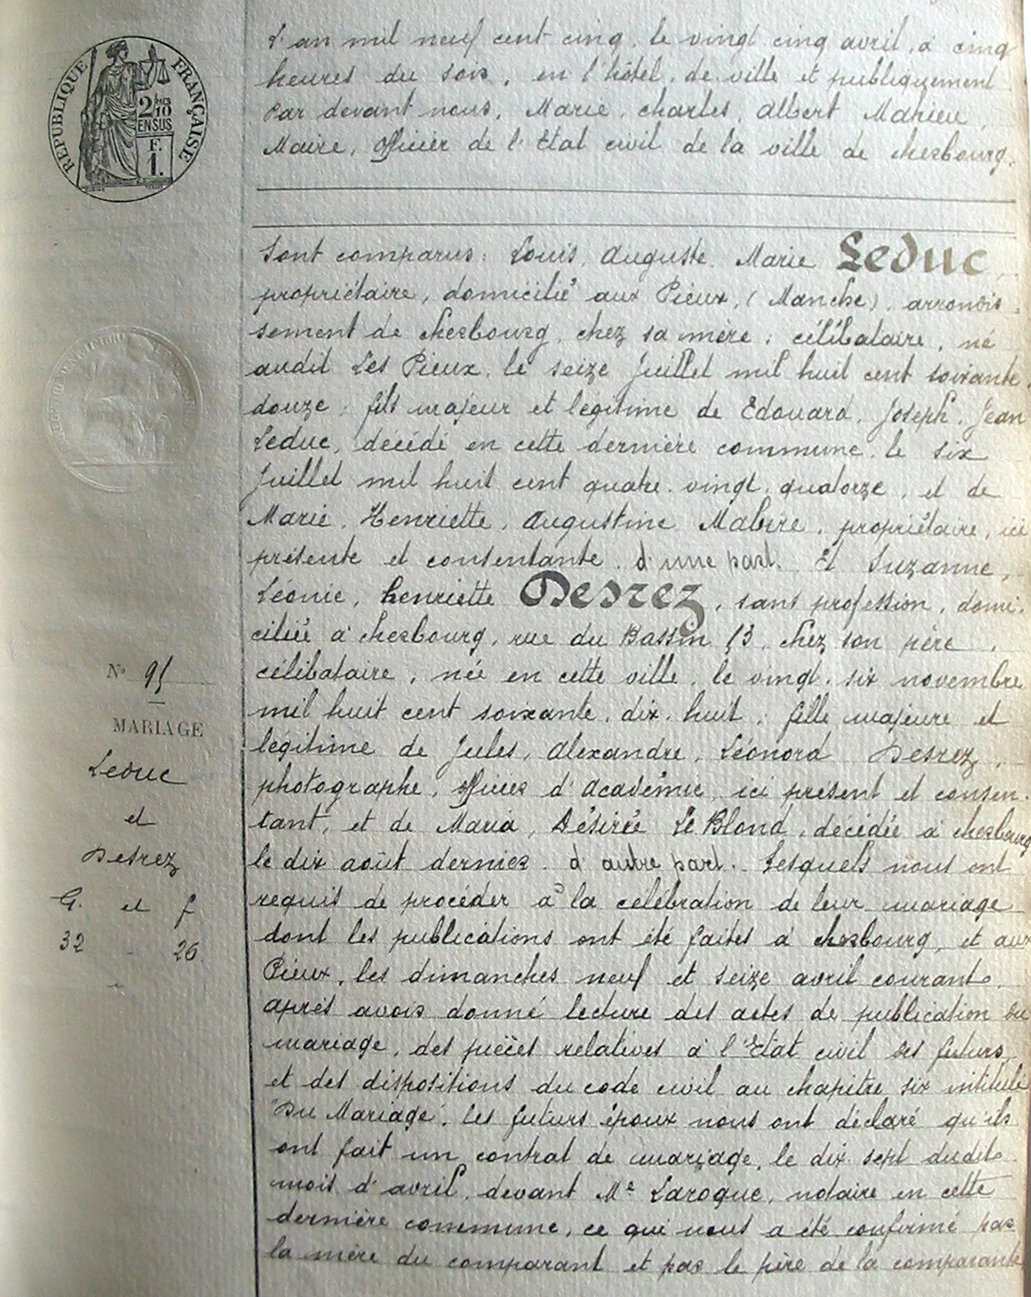 L'an mil neuf cent cinq, le vingt cinq avril, à cinq
heures du soir, en l'hôtel de ville et publiquement
Par devant nous, Marie, Charles, Albert Mahieu,
Maire, officier de l'Etat civil de la ville de cherbourg.
Sont comparus: Louis, Auguste, Marie Leduc,
propriétaire, domicilié aux Pieux, (Manche), arrondis
sement de cherbourg, chez sa mère; célibataire, né
audit Les Pieux, le seize Juillet mil huit cent soixante
douze; fils majeur et légitime de Edouard, Joseph, Jean
Leduc, décédé en cette dernière commune, le six
Juillet mil huit cent quatre-vingt-quatorze, et de
Marie, Henriette, Augustine Mabire, propriétaire, ici
présente et consentante, d'une part. Et Suzanne,
Léonie, henriette Desrez, sans profession, domi-
ciliée à cherbourg, rue du Bassin, chez son père,
célibataire, née en cette ville, le vingt-six novembre
mil huit cent soixante-dix-huit; fille majeure et
légitime de Jules, Alexandre, Léonord Desrez,
photographe, officier d'Académie, ici présent et consen-
tant, et de Maria, Désirée Le Blond, décédée à cherbourg
le dix août dernier, d'autre part. Lesquels nous ont
requis de procéder à la célébration de leur mariage
dont les publications ont été faites à cherbourg, et aux
Pieux, les dimanches neuf et seize avril courant,
après avoir donné lecture des actes de publication du
mariage, des pièces relatives à l'Etat civil des futurs,
et des dispositions du code civil au chapitre six intitulé
"Du Mariage", les futurs époux nous ont déclaré qu'ils
ont fait un contrat de mariage, le dix-sept dudit
mois d'avril, devant Me Laroque, notaire en cette
dernière commune, ce qui nous a été confirmé par
la mère du comparant et par le père de la comparante
RÉPUBLIQUE FRANÇAISE
2 10
EN SUS
F.
1.
No 95
MARIAGE
Leduc
et
Desrez
G. et f
32 26.